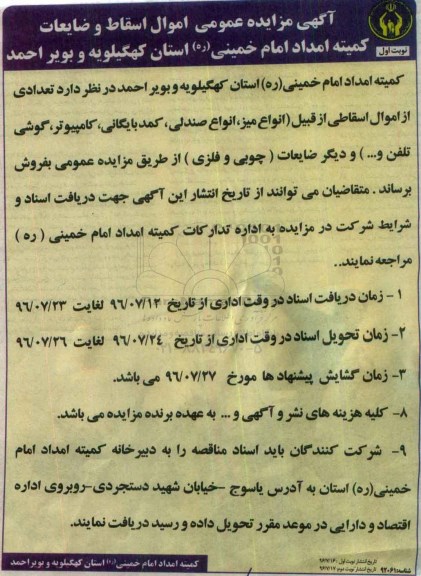 آگهی مزایده عمومی اموال اسقاط و ضایعات
کمیته امداد امام خمینی (ره) استان کهگیلویه و بویر احمد
نوبت اول
کمیته امداد امام خمینی(ره) استان کهگیلویه و بویر احمد در نظر دارد تعدادی
از اموال اسقاطی از قبیل (انواع میز، انواع صندلی، کمد بایگانی، کامپیوتر، گوشی
تلفن و... ) و دیگر ضایعات ( چوبی و فلزی ) از طریق مزایده عمومی بفروش
برساند . متقاضیان می توانند از تاریخ انتشار این آگهی جهت دریافت اسناد و
شرایط شرکت در مزایده به اداره تدارکات کمیته امداد امام خمینی ( ره )
مراجعه نمایند..
۱- زمان دریافت اسناد در وقت اداری از تاریخ ۹۶/۰۷/۱۲ لغایت ۹۶/۰۷/۲۳
۲- زمان تحویل اسناد در وقت اداری از تاریخ ۹۶/۰۷/۲۴ لغایت ۹۶/۰۷/۲۶
۳- زمان گشایش پیشنهاد ها مورخ ۹۶/۰۷/۲۷ می باشد.
۸- کلیه هزینه های نشر و آگهی و ... به عهده برنده مزایده می باشد.
۹- شرکت کنندگان باید اسناد مناقصه را به دبیرخانه کمیته امداد امام
خمینی(ره) استان به آدرس یاسوج -خیابان شهید دستجردی-روبروی اداره
اقتصاد و دارایی در موعد مقرر تحویل داده و رسید دریافت نمایند.
کمیته امداد امام خمینی(ره) استان کهگیلویه و بویر احمد
تاریخ انتشار نوبت اول:
تاریخ انتشار نوبت دوم: